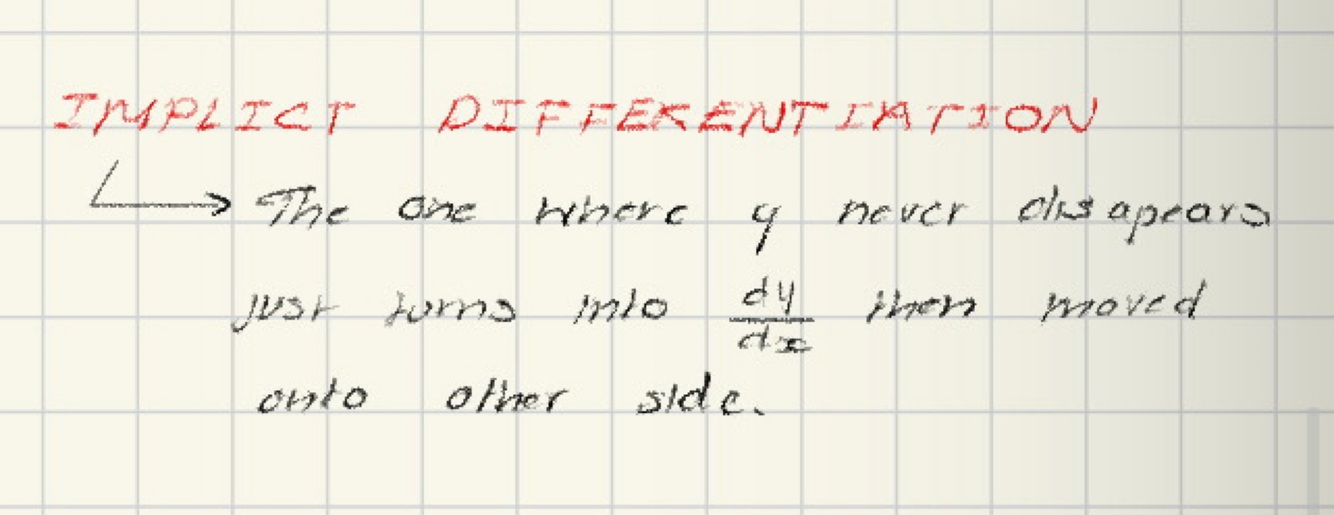 IMPLICT DIFFERENTIATION
The one where y never disapears
just turns into dy/dx then moved
onto other side.